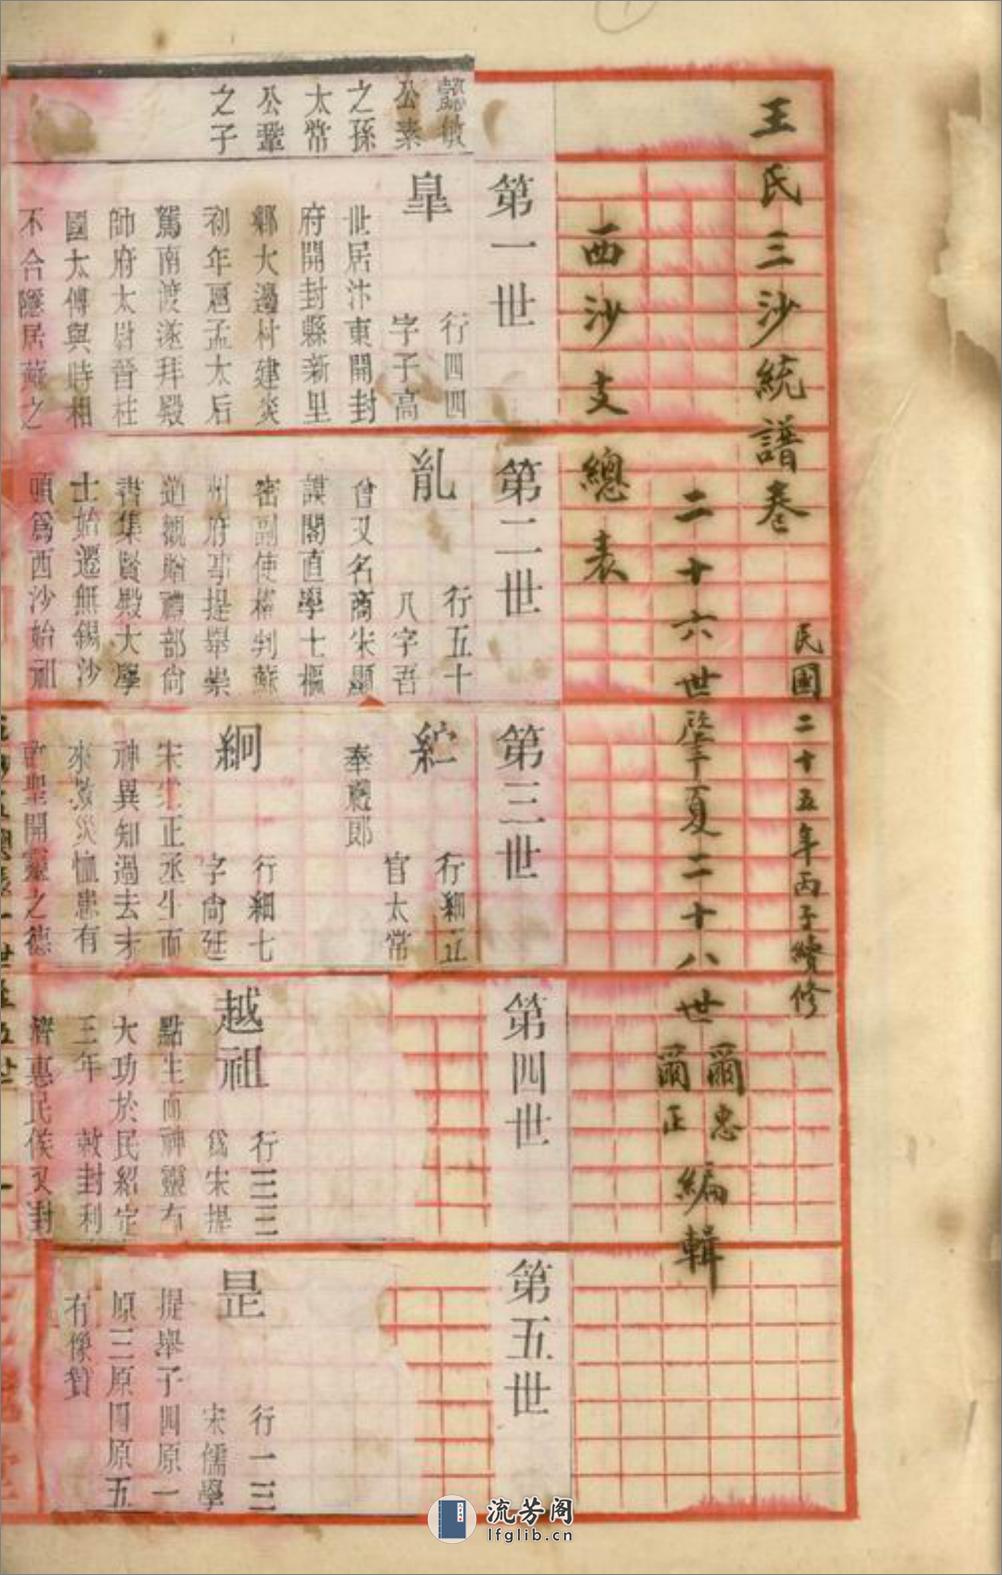 王氏三沙統譜卷
民國二十五年丙子續修
二十六世肇夏二十八世爾忠爾正編輯
西沙支總表
第一世
懿敏
公素
之孫
太常
公鞏
之子
皐
行四四
字子高
世居汴東開封
府開封縣新里
鄉大邊村建炎
初年扈孟太后
駕南渡遂拜殿
帥府太尉晉柱
國太傅與時相
不合隱居蘇之
第二世
亂
行五十
八字吾
曾又名商宋顯
謨閣直學士樞
密副使權判蘇
州府事提舉崇
道觀贈禮部尙
書集賢殿大學
士始遷無錫沙
頭爲西沙始祖
第三世
綋
行細五
官太常
奉禮郎
綱
行細七
字尙廷
宋寺正丞生而
神異知過去未
來救災恤患有
啟聖開靈之德
第四世
越祖
行三三
爲宋提
點生而神靈有
大功於民紹定
三年 敕封利
濟惠民侯又封
第五世
昰
行一三
宋儒學
提舉子四原一
原三原四原五
有像贊
流芳阁
lfglib.cn